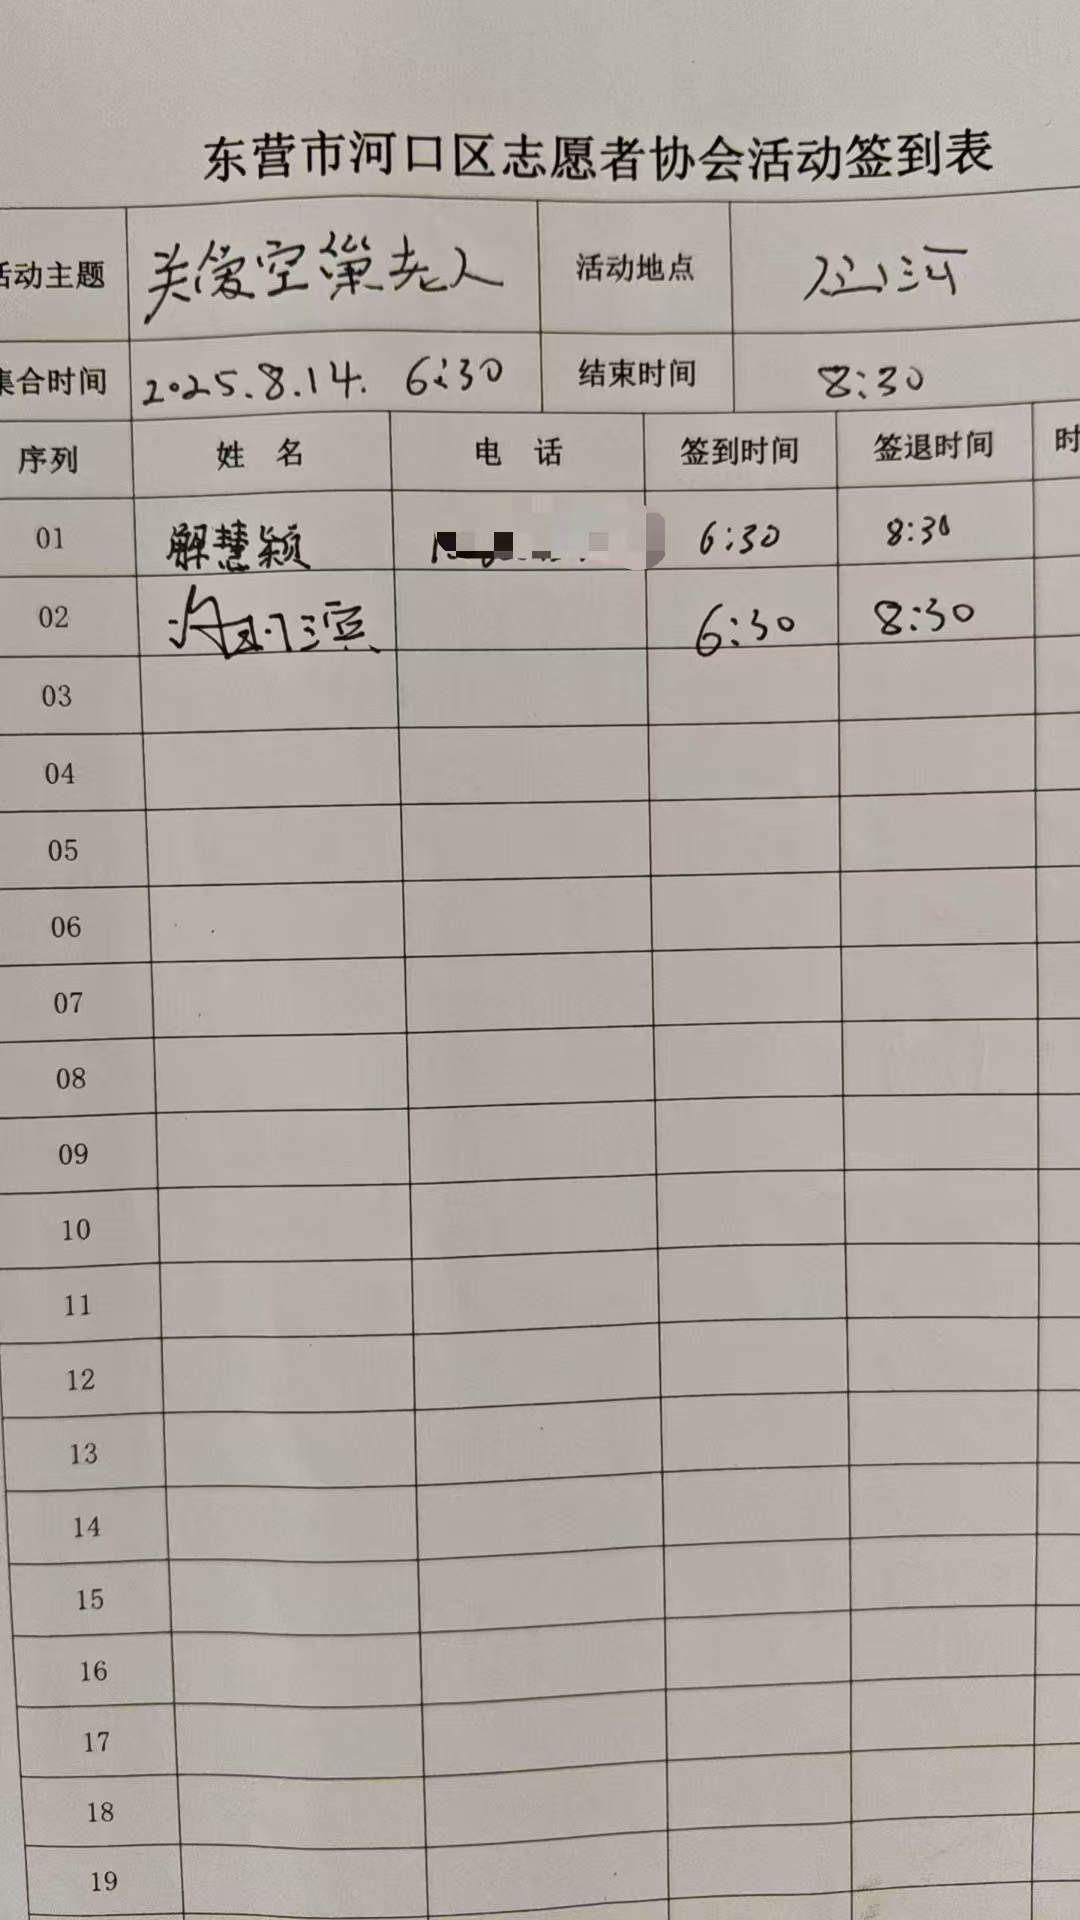 东营市河口区志愿者协会活动签到表
活动主题 关爱空巢老人 活动地点
集合时间 2025.8.14. 6:30 结束时间 8:30
序列 姓 名 电 话 签到时间 签退时间 时
01 解慧颖 6:30 8:30
02 6:30 8:30
03
04
05
06
07
08
09
10
11
12
13
14
15
16
17
18
19